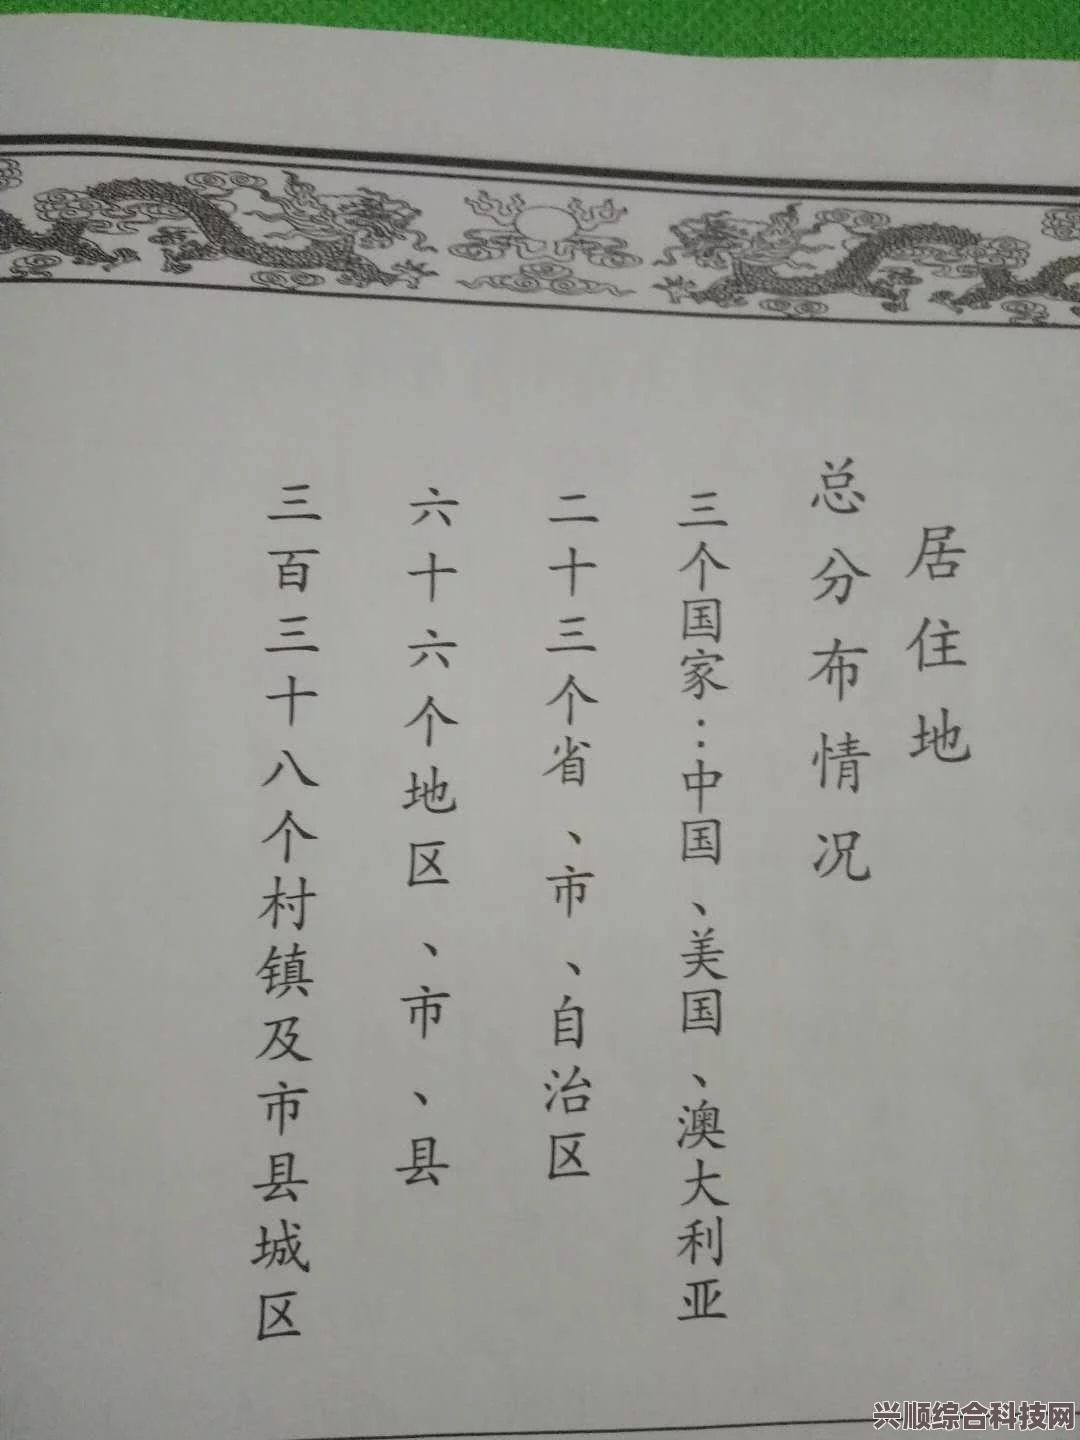 居住地
总分布情况
三个国家：中国、美国、澳大利亚
二十三个省、市、自治区
六十六个地区、市、县
三百三十八个村镇及市县城区
兴顺综合科技网